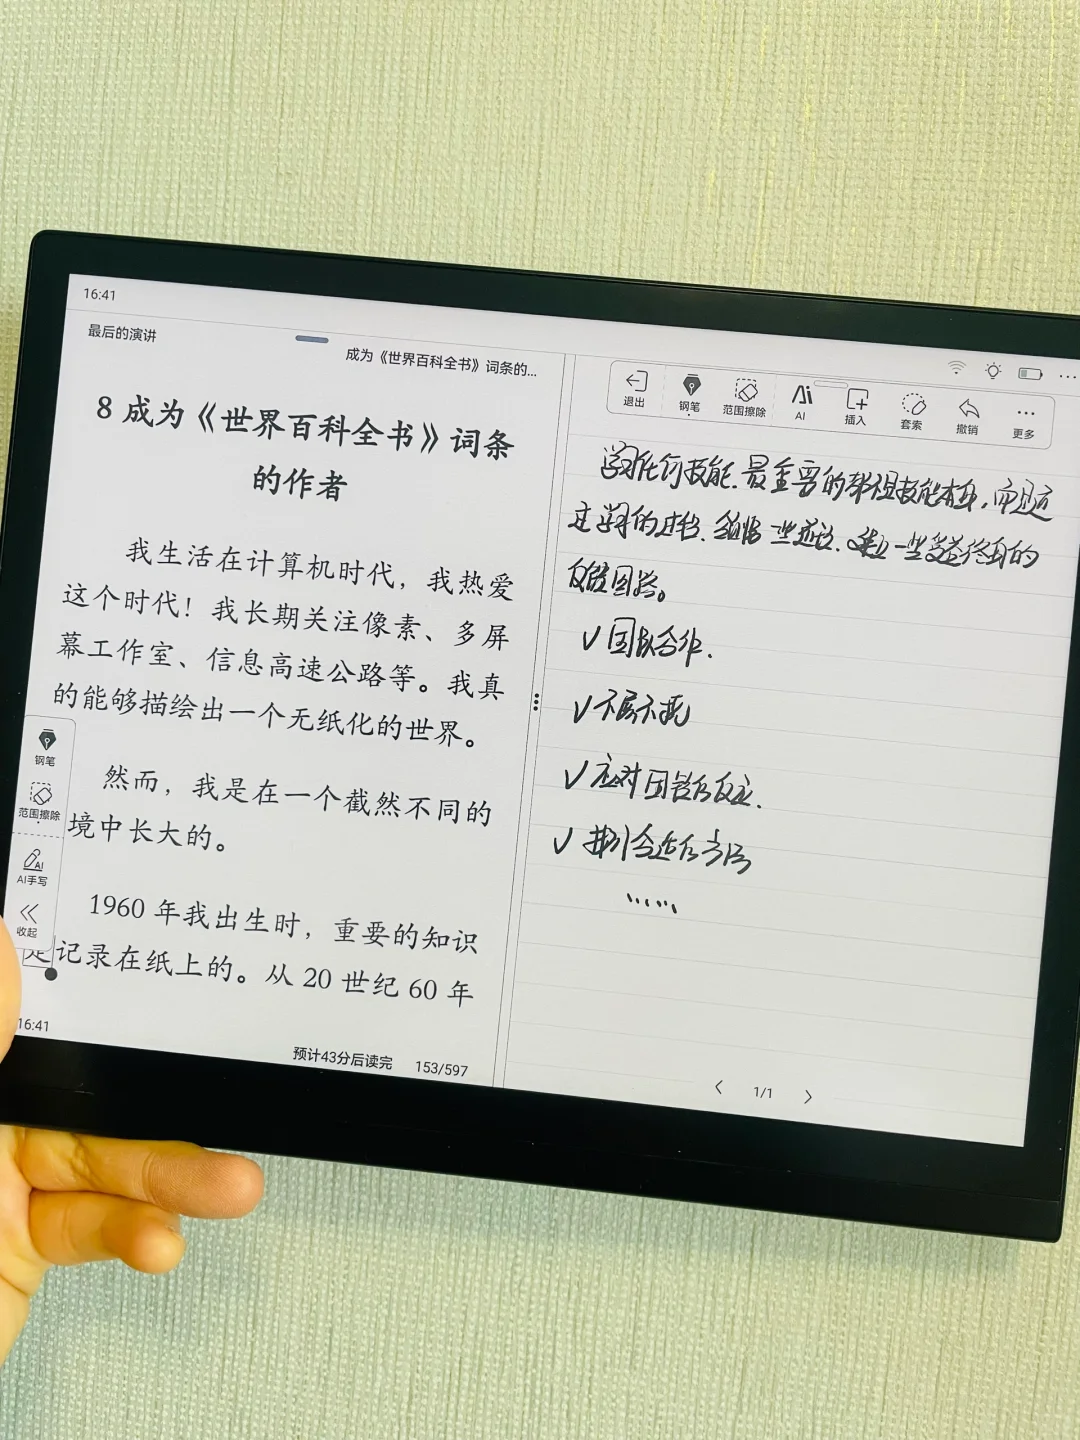 16:41
最后的演讲
成为《世界百科全书》词条的...
8 成为《世界百科全书》词条
的作者
我生活在计算机时代，我热爱
这个时代！我长期关注像素、多屏
幕工作室、信息高速公路等。我真
的能够描绘出一个无纸化的世界。
然而，我是在一个截然不同的
境中长大的。
1960 年我出生时，重要的知识
记录在纸上的。从 20 世纪 60 年
钢笔
范围擦除
AI手写
收起
16:41
预计43分后读完 153/597
退出 钢笔 范围擦除 AI 插入 套索 撤销 更多
学习任何技能.最重要的都不是技能本身,而是
过学习的过程. 一些 一些受益终身的
反馈回路。
✓ 团队合作.
✓ 不屈不挠
✓ 应对困难的反应.
✓ 合适的
......
1/1